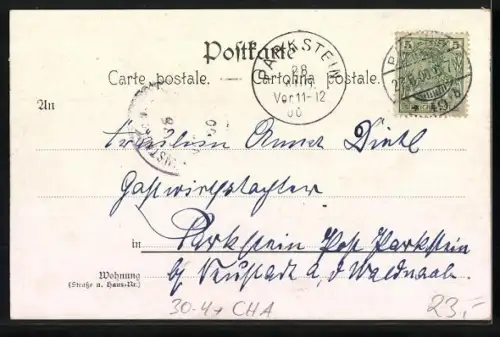 Postkarte
Carte postale. — Cartolina postale.
An
PARKSTEIN
28
Vor 11-12
00
5 5
Fräulein Annet Dietl
Gastwirthstochter
in Parkstein Post Parkstein
b/ Neustadt a, d Waldnaab.
Wohnung
(Straße u. Haus-Nr.)
30-4+ CHA
23,-